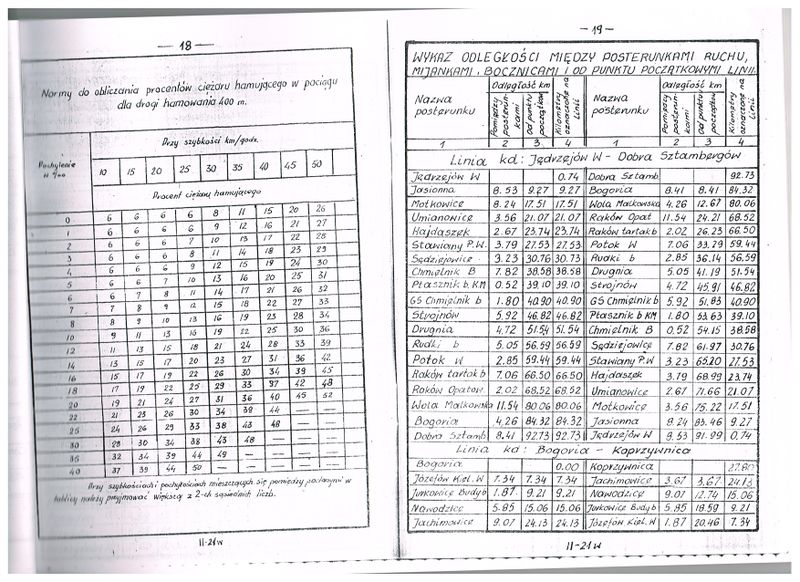 — 18 —
Normy do obliczania procentów ciężaru hamującego w pociągu
dla drogi hamowania 400 m.
Pochylenie w ‰
Przy szybkości km/godz.
10 15 20 25 30 35 40 45 50
Procent ciężaru hamującego
0 6 6 6 6 8 11 15 20 26
1 6 6 6 6 9 12 16 21 27
2 6 6 6 7 10 13 17 22 28
3 6 6 6 8 11 14 18 23 29
4 6 6 6 9 12 15 19 24 30
5 6 6 7 10 13 16 20 25 31
6 6 7 8 11 14 17 21 26 32
7 7 8 9 12 15 18 22 27 33
8 8 9 10 13 16 19 23 28 34
10 9 11 13 15 19 22 25 30 36
12 11 13 15 18 21 24 28 33 39
14 13 15 17 20 23 27 31 36 42
16 15 17 19 22 26 30 34 39 45
18 17 19 22 25 29 33 37 42 48
20 19 21 24 27 31 36 40 45 52
22 21 23 26 30 34 39 44 — —
25 24 26 29 33 38 43 48 — —
30 28 30 34 38 43 48 — — —
35 32 34 39 44 49 — — — —
40 37 39 44 50 — — — — —
Przy szybkościach i pochyłościach mieszczących się pomiędzy podanymi w
tablicy należy przyjmować większą z 2-ch sąsiednich liczb.
II-21w
— 19 —
WYKAZ ODLEGŁOŚCI MIĘDZY POSTERUNKAMI RUCHU,
MIJANKAMI, BOCZNICAMI I OD PUNKTU POCZĄTKOWYMI LINII.
Nazwa posterunku
Odległość km
Pomiędzy posterunkami
Od punktu początkow.
Kilometry oznaczone na linii
Nazwa posterunku
Odległość km
Pomiędzy posterunkami
Od punktu początkow.
Kilometry oznaczone na linii
1 2 3 4 1 2 3 4
Linia kd: Jędrzejów W - Dobra Sztambergów
Jędrzejów W 0.74 Dobra Sztamb. 92.73
Jasionna 8.53 9.27 9.27 Bogoria 8.41 8.41 84.32
Motkowice 8.24 17.51 17.51 Wola Malkowska 4.26 12.67 80.06
Umianowice 3.56 21.07 21.07 Raków Opat 11.54 24.21 68.52
Hajdaszek 2.67 23.74 23.74 Raków tartak b 2.02 26.23 66.50
Stawiany P.W. 3.79 27.53 27.53 Potok W 7.06 33.29 59.44
Sędziejowice 3.23 30.76 30.73 Rudki b 2.85 36.14 56.59
Chmielnik B 7.82 38.58 38.58 Drugnia 5.05 41.19 51.54
Ptasznik b. KM 0.52 39.10 39.10 Strojnów 4.72 45.91 46.82
GS Chmielnik b 1.80 40.90 40.90 GS Chmielnik b 5.92 51.83 40.90
Strojnów 5.92 46.82 46.82 Ptasznik b KM 1.80 53.63 39.10
Drugnia 4.72 51.54 51.54 Chmielnik B 0.52 54.15 38.58
Rudki b 5.05 56.59 56.59 Sędziejowice 7.82 61.97 30.76
Potok W 2.85 59.44 59.44 Stawiany P.W 3.23 65.20 27.53
Raków tartak b 7.06 66.50 66.50 Hajdaszek 3.79 68.99 23.74
Raków Opatow. 2.02 68.52 68.52 Umianowice 2.67 71.66 21.07
Wola Malkowska 11.54 80.06 80.06 Motkowice 3.56 75.22 17.51
Bogoria 4.26 84.32 84.32 Jasionna 8.24 83.46 9.27
Dobra Sztamb. 8.41 92.73 92.73 Jędrzejów W 9.53 91.99 0.74
Linia kd: Bogoria - Koprzywnica
Bogoria 0.00 Koprzywnica 27.80
Józefów Kiel. W 7.34 7.34 7.34 Jachimowice 3.67 3.67 24.13
Junkowice Budy b 1.87 9.21 9.21 Nawodzice 9.07 12.74 15.06
Nawodzice 5.85 15.06 15.06 Junkowice Budy b 5.85 18.59 9.21
Jachimowice 9.07 24.13 24.13 Józefów Kiel. W 1.87 20.46 7.34
II-21w